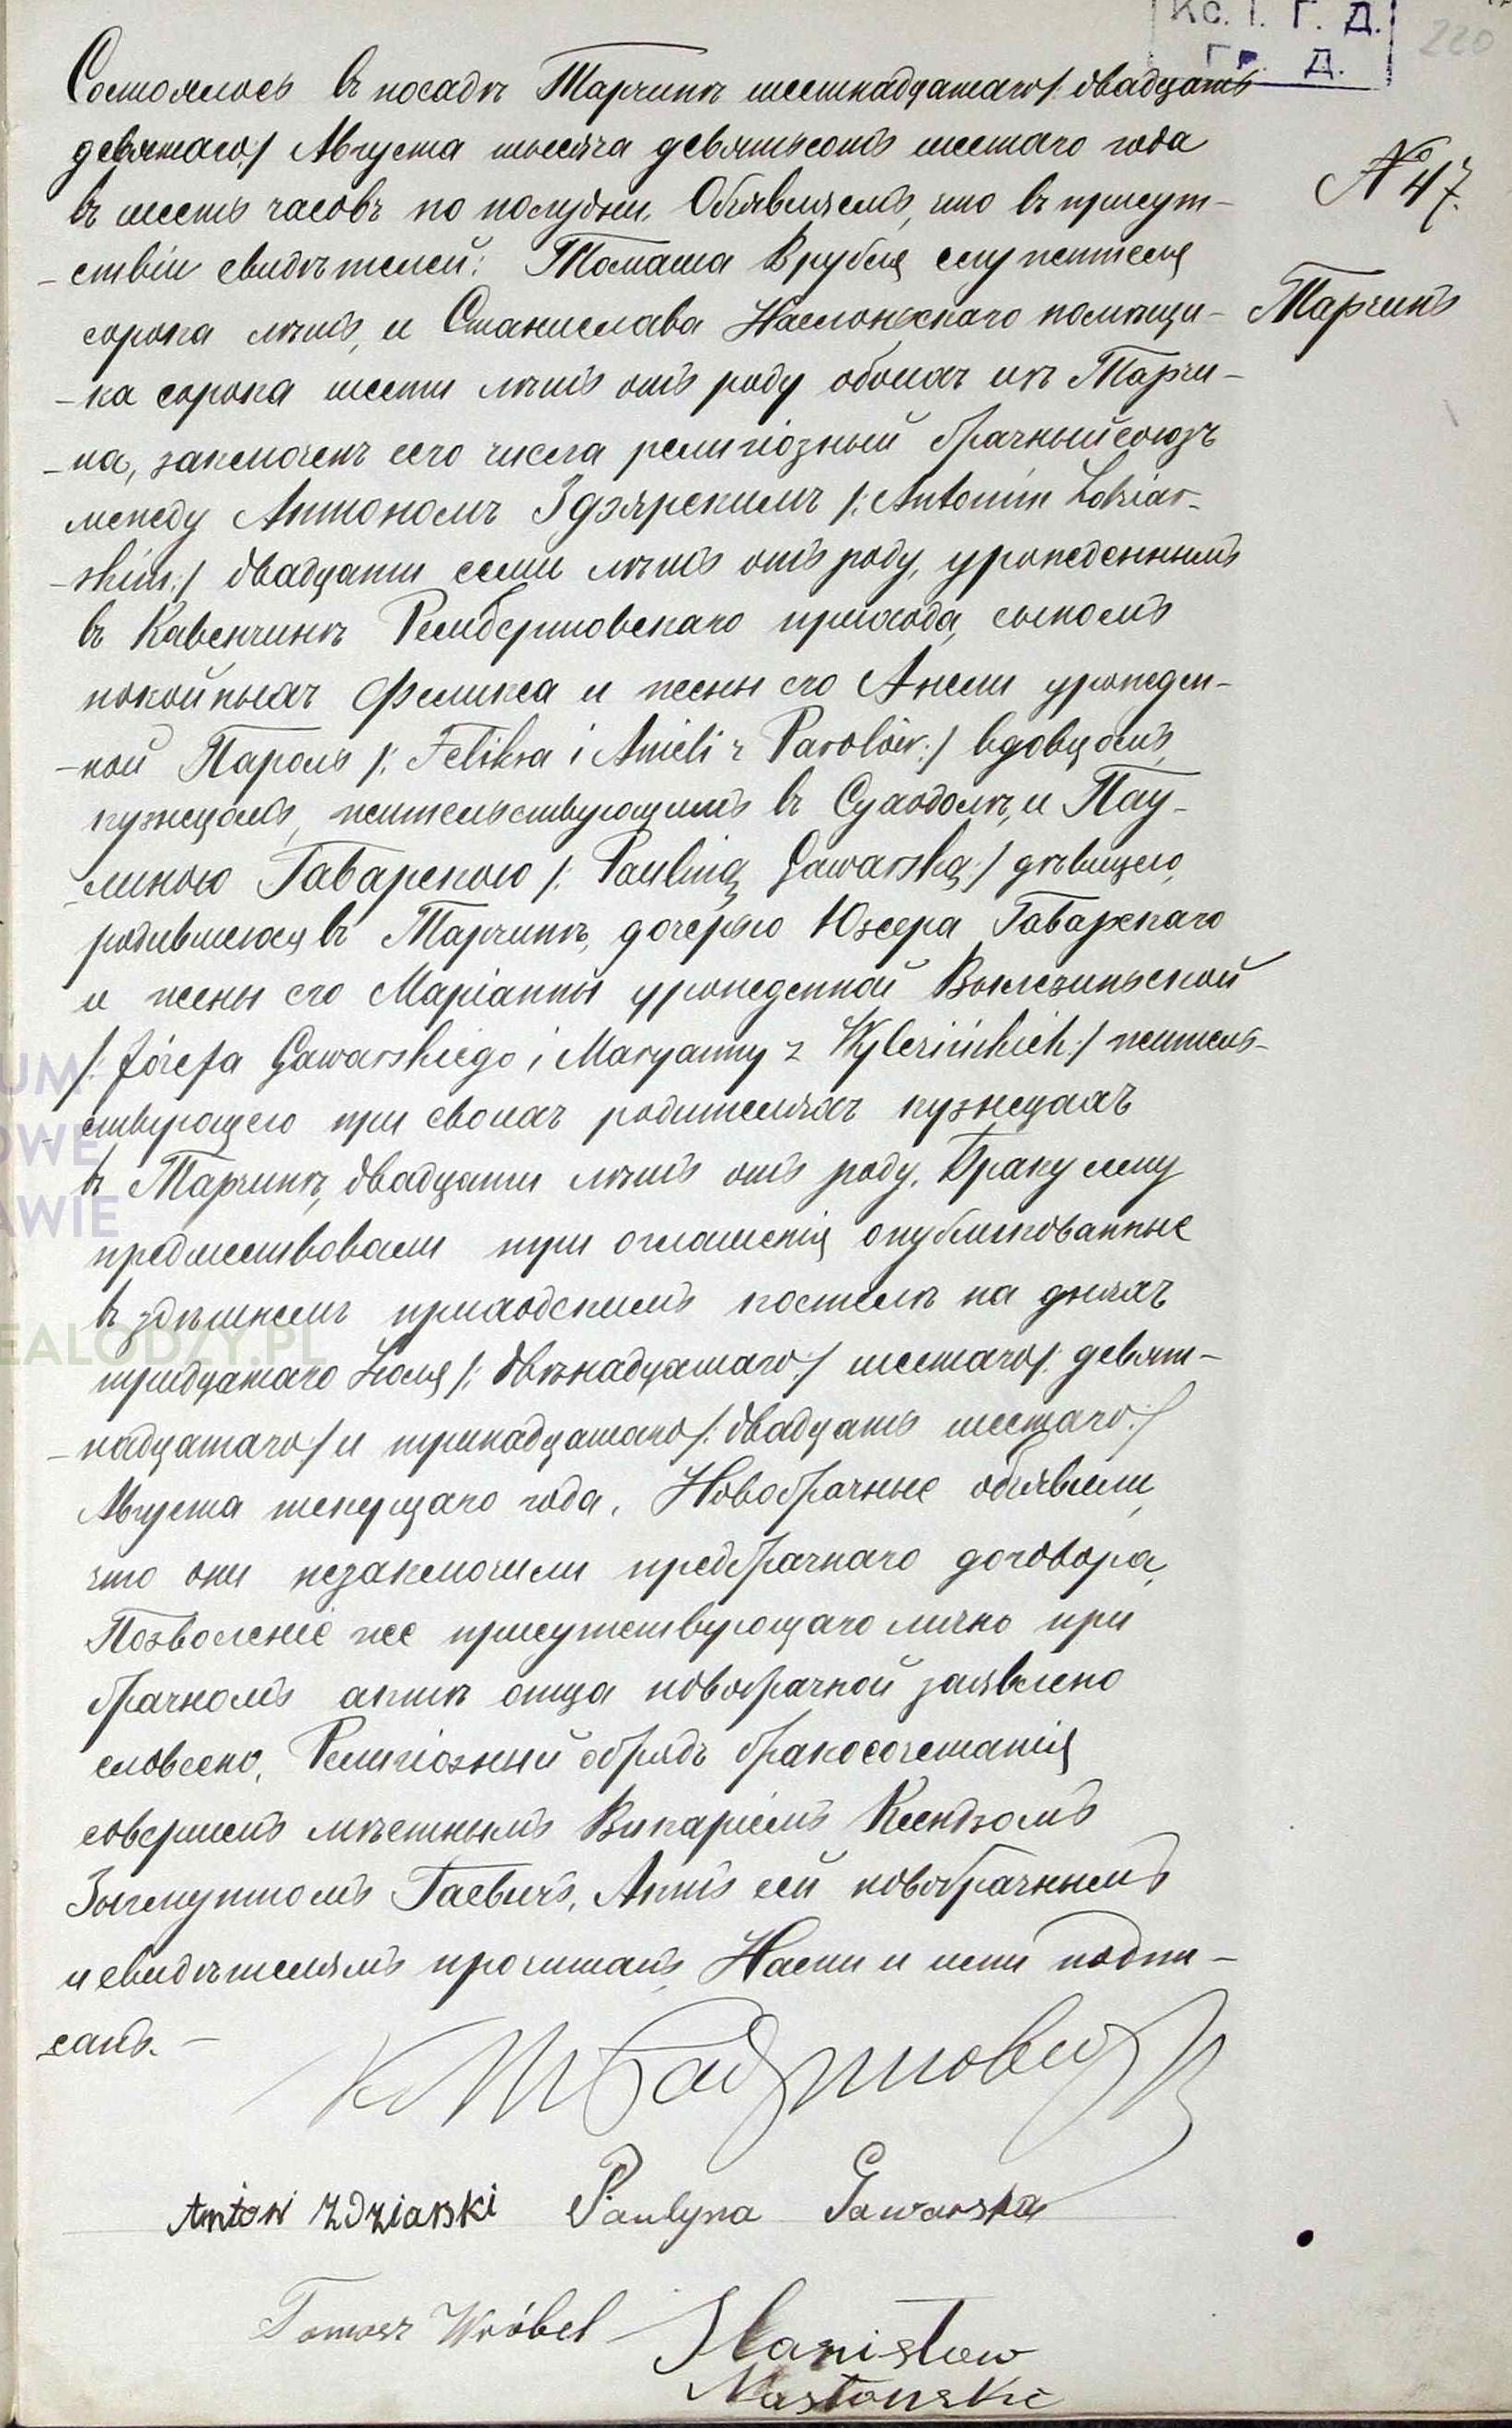 Кс. І. Г. Д.
Гр. Д.
220
Состоялось въ посадѣ Тарчинѣ шестнадцатаго /: двадцать
девятаго :/ Августа тысяча девятьсотъ шестаго года
№ 47.
въ шесть часовъ по полудни. Объявляемъ, что въ присут-
-ствіи свидѣтелей: Томаша Врубля служителя
сорока лѣтъ, и Станислава Наслонскаго помѣщи-
Тарчинъ
-ка сорока шести лѣтъ отъ роду обоихъ изъ Тарчи-
-на, заключенъ сего числа религіозный брачный союзъ
между Антономъ Здзярскимъ /: Antonim Zdziar-
-skim :/ двадцати семи лѣтъ отъ роду, урожденнымъ
въ Кавенчинѣ Рембертовскаго прихода, сыномъ
покойныхъ Феликса и жены его Анели урожден-
-ной Пароль /: Feliksa i Anieli z Parolów :/ вдовцомъ,
кузнецомъ, жительствующимъ въ Суходолѣ, и Пау-
-линою Гаварскою /: Pauliną Gawarską :/ дѣвицею,
родившеюся въ Тарчинѣ, дочерью Юзефа Гаварскаго
и жены его Маріанны урожденной Вылезинской
/: Józefa Gawarskiego i Maryanny z Wylezińskich :/ житель-
-ствующею при своихъ родителяхъ кузнецахъ
въ Тарчинѣ, двадцати лѣтъ отъ роду. Браку сему
предшествовали три оглашенія опубликованные
въ здѣшнемъ приходскимъ костелѣ на дняхъ
тридцатаго Іюля /: двѣнадцатаго :/ шестаго /: девят-
-надцатаго :/ и тринадцатаго /: двадцать шестаго :/
Августа текущаго года. Новобрачные объявили,
что они незаключили предбрачнаго договора,
Позволеніе же присутствующаго лично при
брачномъ актѣ отца новобрачной заявлено
словесно. Религіозный обрядъ бракосочетанія
совершенъ мѣстнымъ Викаріемъ Ксендзомъ
Зыгмунтомъ Гаевичъ. Актъ сей новобрачнымъ
и свидѣтелямъ прочитанъ, Нами и ими подпи-
санъ. —
Antoni Zdziarski Paulyna Gawarska
Tomasz Wróbel Stanisław
Nasłonski